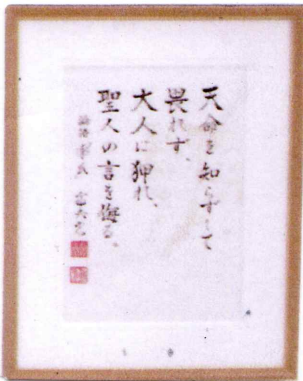 天命を知らずして
畏れず、
大人に狎れ、
聖人の言を侮る。
論語 季氏